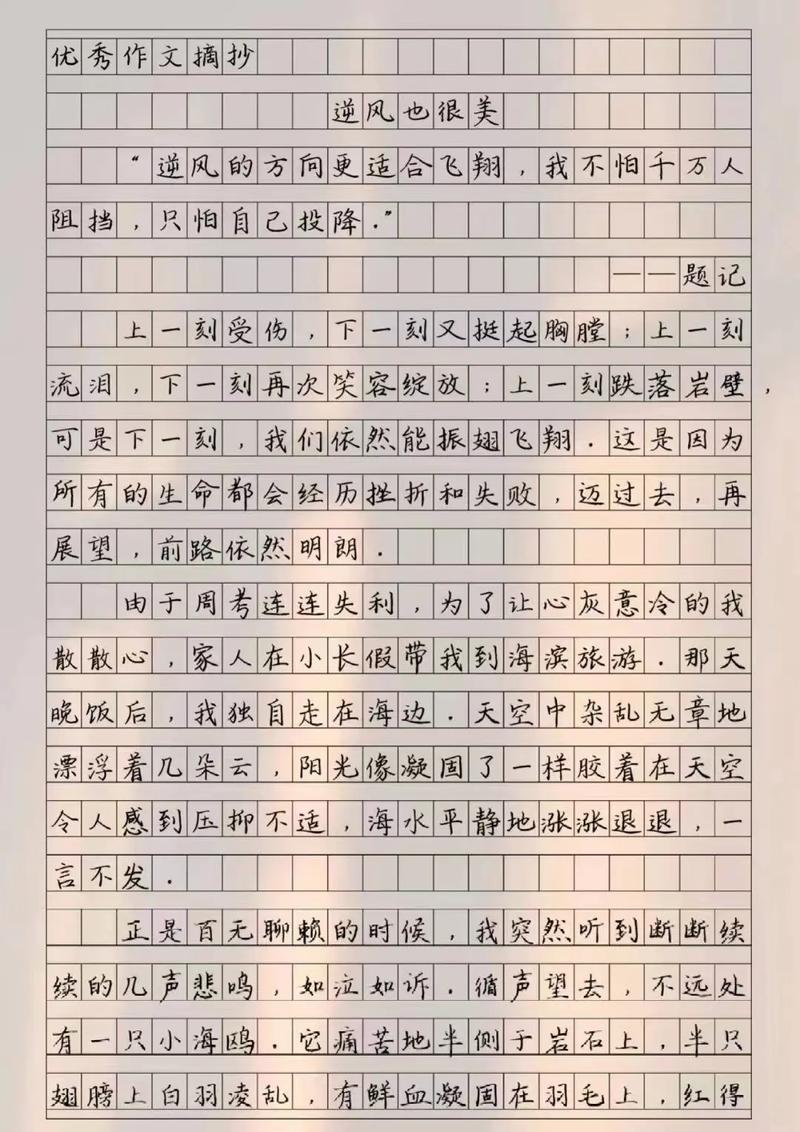 优秀作文摘抄
逆风也很美
“逆风的方向更适合飞翔，我不怕千万人
阻挡，只怕自己投降.”
——题记
上一刻受伤，下一刻又挺起胸膛；上一刻
流泪，下一刻再次笑容绽放；上一刻跌落岩壁，
可是下一刻，我们依然能振翅飞翔.这是因为
所有的生命都会经历挫折和失败，迈过去，再
展望，前路依然明朗.
由于周考连连失利，为了让心灰意冷的我
散散心，家人在小长假带我到海滨旅游.那天
晚饭后，我独自走在海边.天空中杂乱无章地
漂浮着几朵云，阳光像凝固了一样胶着在天空
令人感到压抑不适，海水平静地涨涨退退，一
言不发.
正是百无聊赖的时候，我突然听到断断续
续的几声悲鸣，如泣如诉.循声望去，不远处
有一只小海鸥.它痛苦地半侧于岩石上，半只
翅膀上白羽凌乱，有鲜血凝固在羽毛上，红得